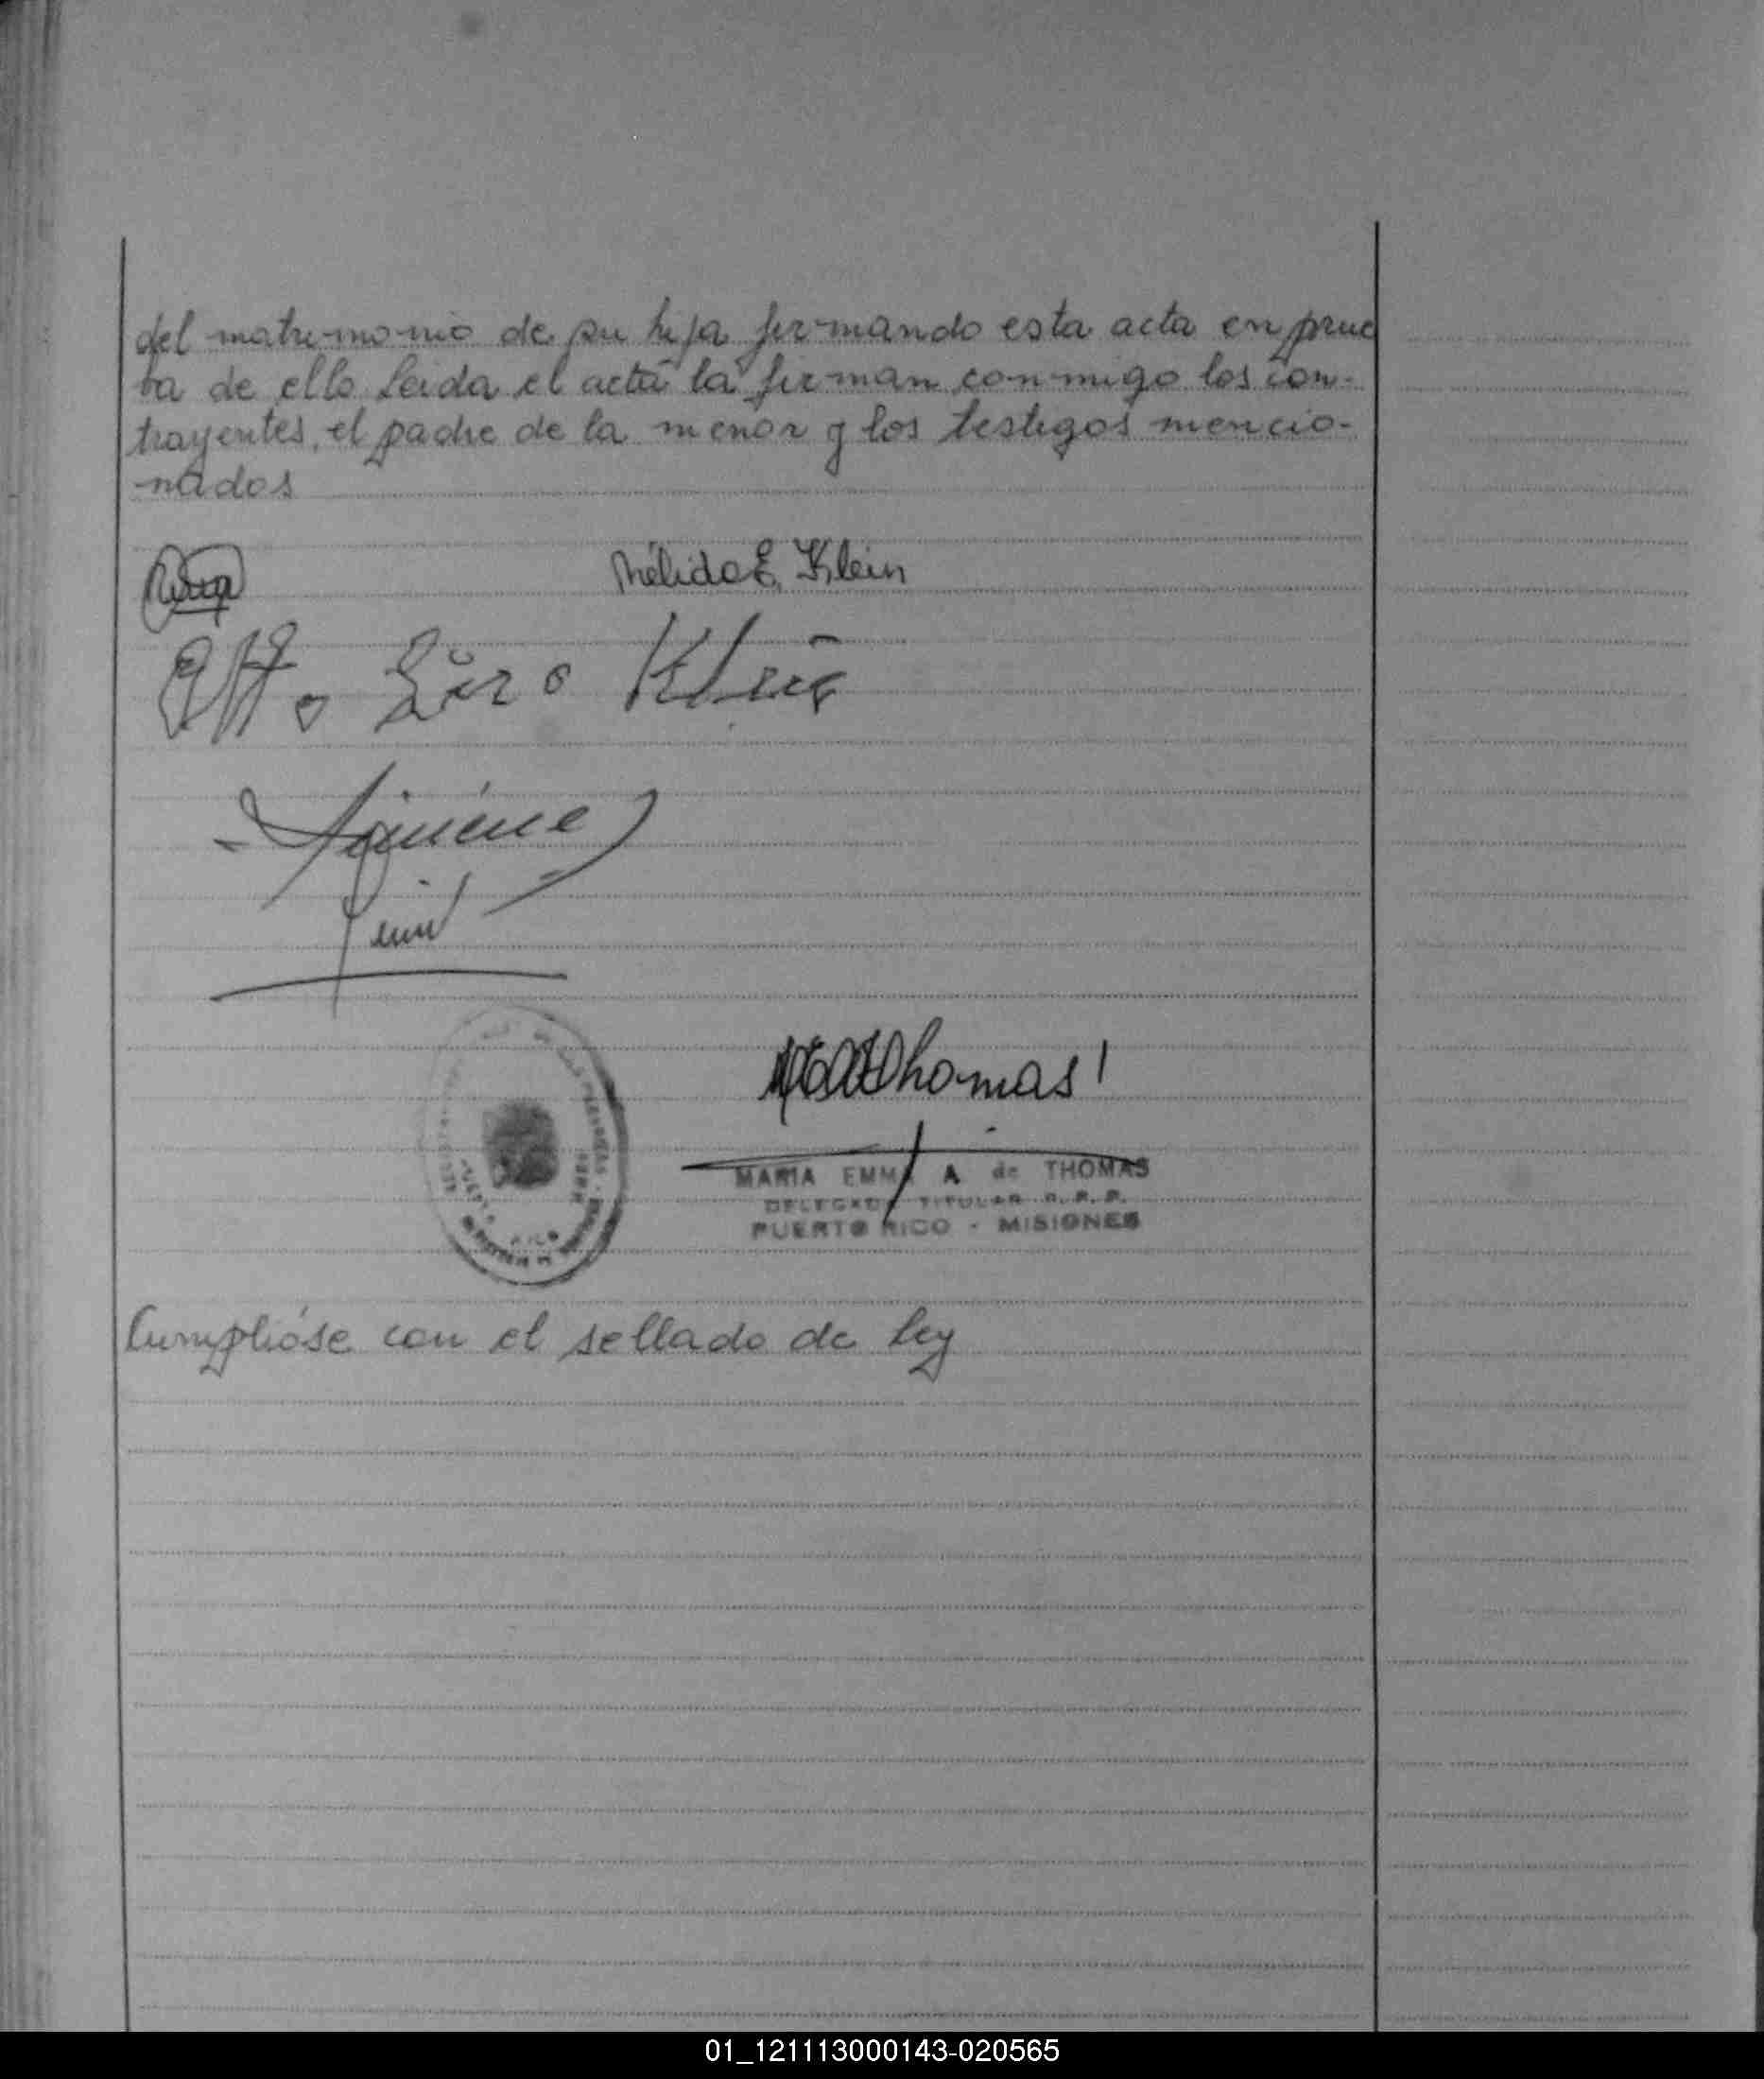 del matrimonio de su hija firmando esta acta en prue
ba de ello leida el acta la firman conmigo los con-
trayentes, el padre de la menor y los testigos mencio-
nados
Nélida E. Klein
Klein
Thomas
MARIA EMMA A de THOMAS
DELEGADO TITULAR R. P. P.
PUERTO RICO - MISIONES
Cumplióse con el sellado de ley
01_121113000143-020565